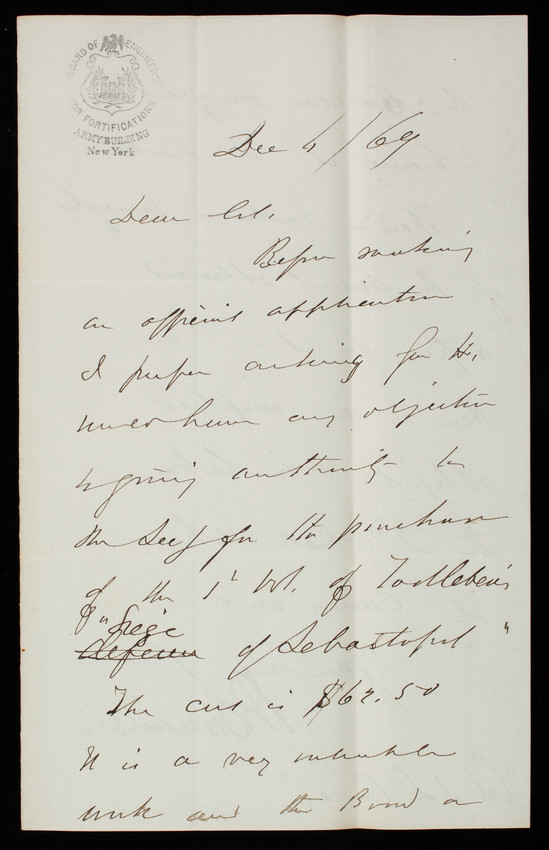 BOARD OF ENGINEERS
FOR FORTIFICATIONS
ARMY BUILDING
New York
Dec 4/69
Dear Col.
Before making
an official application
I prefer asking
have any objection
to giving authority to
the Secy for the purchase
of the 1st Vol. of Todleben's
"Siege
defence of Sebastopol"
The cost is $62.50
It is a very valuable
work and the Board